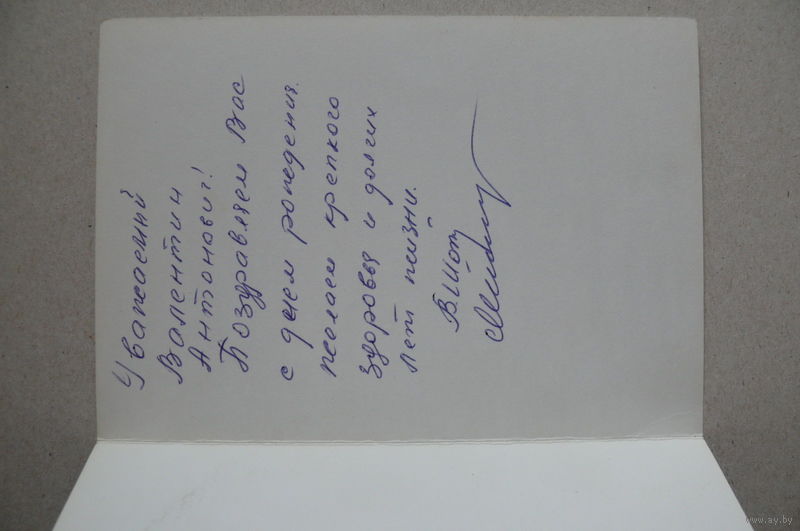 Уважаемый
Валентин
Антонович!
Поздравляем Вас
с днем рождения.
желаем крепкого
здоровья и долгих
лет жизни.
www.ay.by